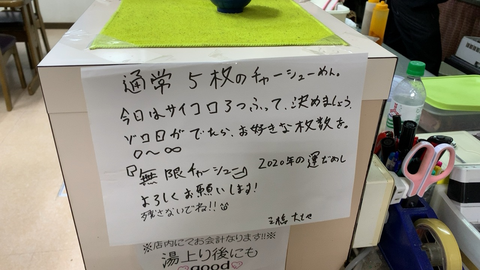 通常 5枚のチャーシューめん。
今日はサイコロ3つふって、決めましょう。
ゾロ目がでたら、お好きな枚数を。
0〜∞
『無限チャーシュー』 2020年の運だめし
よろしくお願いします!
残さないでね!!
※店内にてお会計なります!!※
湯上り後にも
good♡